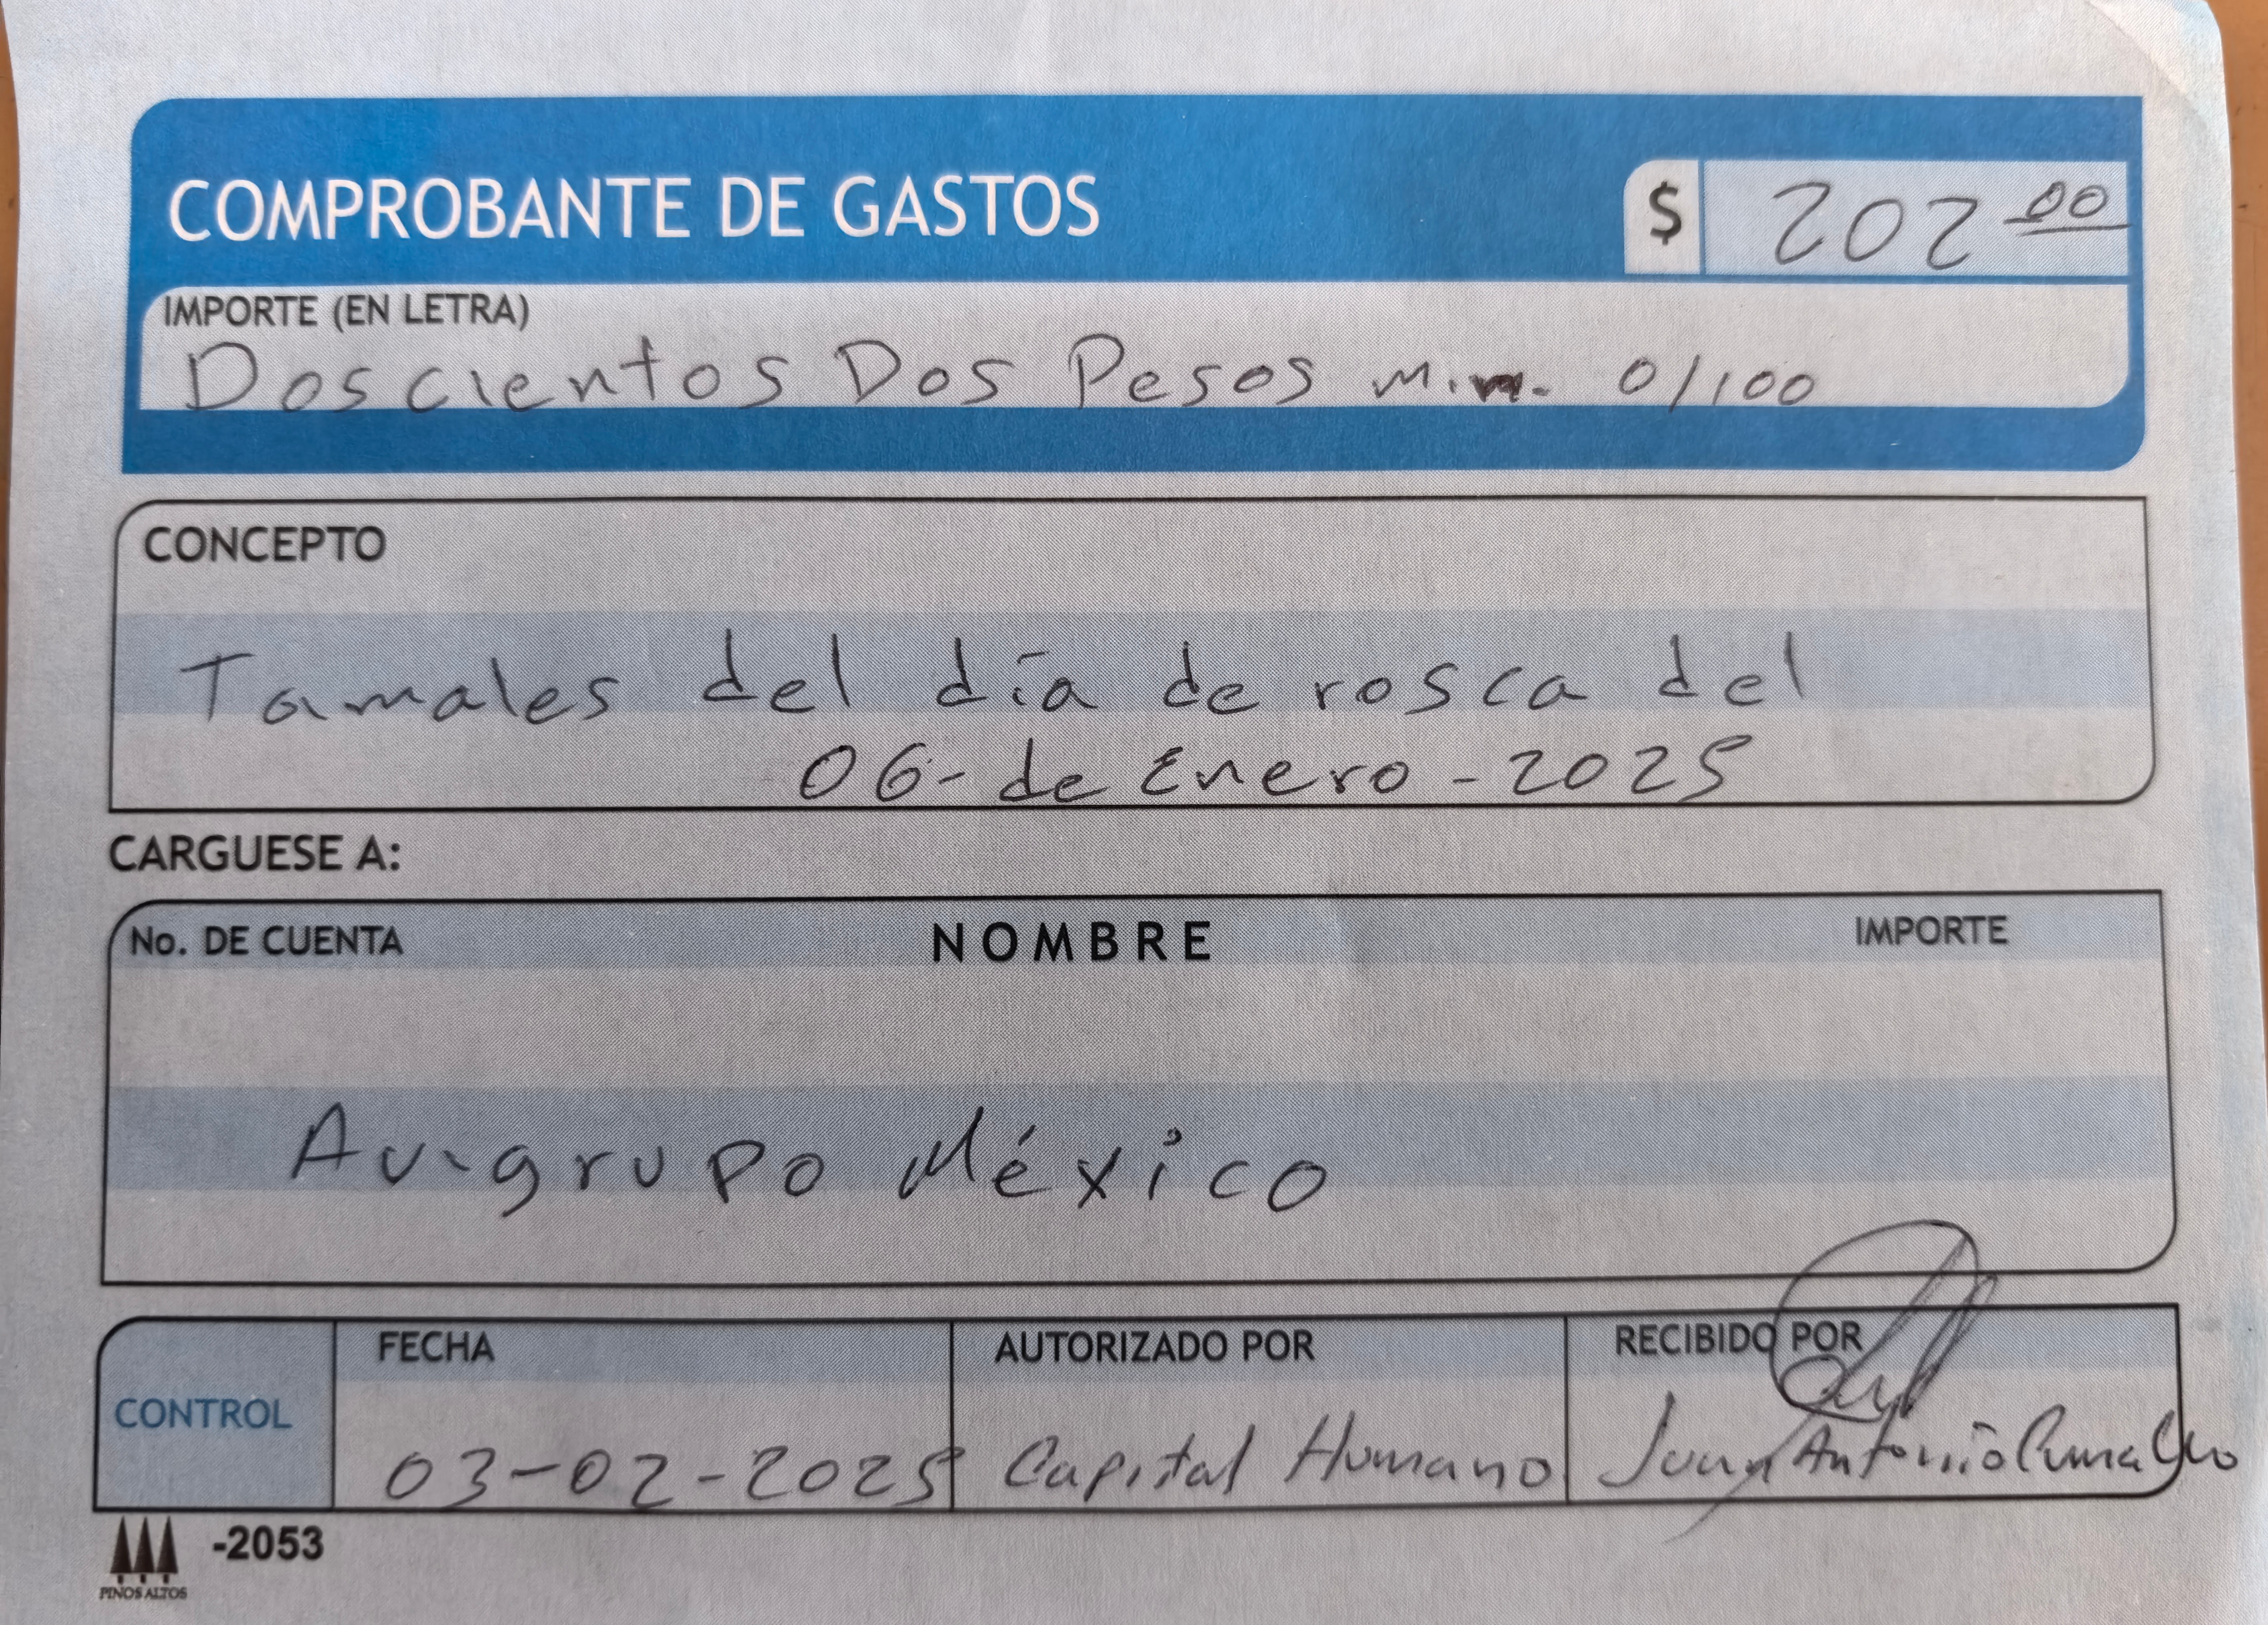 COMPROBANTE DE GASTOS
$ 202 00
IMPORTE (EN LETRA)
Doscientos Dos Pesos m.n. 0/100
CONCEPTO
Tamales del día de rosca del
06-de Enero-2025
CARGUESE A:
No. DE CUENTA NOMBRE IMPORTE
Avigrupo México
CONTROL
FECHA
03-02-2025
AUTORIZADO POR
Capital Humano
RECIBIDO POR
Juan Antonio
-2053
PINOS ALTOS